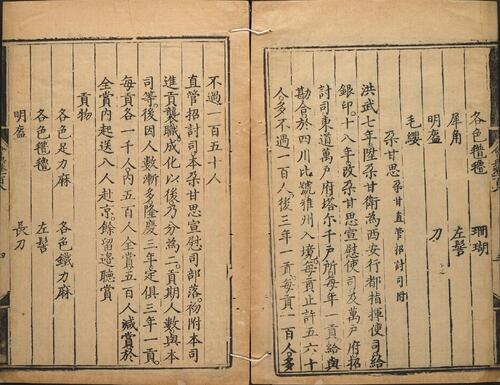 各色氆氌 珊瑚
犀角 左髻
明盔 刀
毛纓
朶甘思 朶甘直管招討司附
洪武七年陞朶甘衛為西安行都指揮使司給
銀印。十八年改朶甘思宣慰使司及萬戶府招
討司東道萬戶府塔尔千戶所每年一貢給與
勘合於四川比號雅州入境每貢止許五六十
人多不過一百人後三年一貢。每貢一百人。多
不過一百五十人
直管招討司本朶甘思宣慰司部落。初附本司
進貢襲職成化以後乃分為二。貢期人數與本
司等。後因人數漸多隆慶三年定俱三年一貢。
每貢各一千人內五百人全賞五百人減賞於
全賞內起送八人赴京。餘留邊聽賞
貢物
各色足力麻 各色鐵力麻
各色氆氌 左髻
明盔 長刀